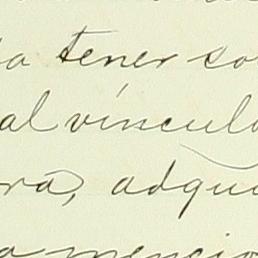 a tener so
al vínculo
rá, adqui
a mencio